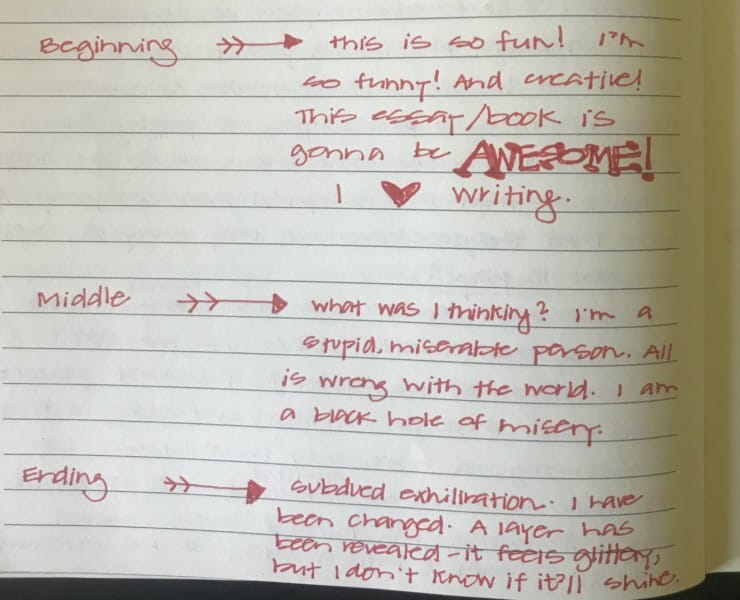 Beginning this is so fun! I'm
so funny! And creative!
This essay/book is
gonna be AWESOME!
I ♥ writing.
Middle what was I thinking? I'm a
stupid, miserable person. All
is wrong with the world. I am
a black hole of misery.
Ending subdued exhiliration. I have
been changed. A layer has
been revealed - it feels glittery,
but I don't know if it'll shine.